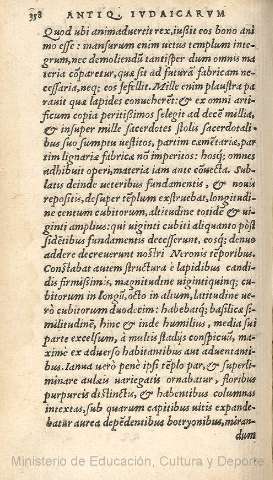 358 ANTIQ. IVDAICARVM
Quod ubi animaduertit rex, iussit eos bono ani
mo esse: mansurum enim uetus templum inte-
grum, nec demoliendū tantisper dum omnis ma
teria cōparetur, quæ sit ad futurā fabricam ne-
cessaria, neq; eos fefellit. Mille enim plaustra pa
rauit quæ lapides conueherēt: & ex omni arti-
ficum copia peritissimos selegit ad decē millia,
& insuper mille sacerdotes stolis sacerdotali-
bus suo sumptu uestitos, partim cæmētariæ, par
tim lignariæ fabricæ nō imperitos: hosq; omnes
adhibuit operi, materia iam ante cōuecta. Sub-
latus deinde ueteribus fundamentis, & nouis
repositis, desuper tēplum extruebat, longitudi-
ne centum cubitorum, altitudine totidē & ui-
ginti amplius: qui uiginti cubiti aliquanto pōst
sidētibus fundamentis decesserunt, eosq; denuo
addere decreuerunt nostri Neronis tēporibus.
Constabat autem structura è lapidibus candi-
dis firmissimis, magnitudine uigintiquinq; cu-
bitorum in longū, octo in altum, latitudine ue-
rò cubitorum duodecim: habebatq; basilicæ si-
militudinē, hinc & inde humilius, media sui
parte excelsum, à multis stadijs conspicuū, ma-
xime ex aduerso habitantibus aut aduentanti-
bus. Ianua uerò penè ipsi tēplo par, & superli-
minare aulæis uariegatis ornabatur, floribus
purpureis distinctis, & habentibus columnas
intextas, sub quarum capitibus uitis expande-
batur aurea depēdentibus botryonibus, miran-
dum
Ministerio de Educación, Cultura y Deporte